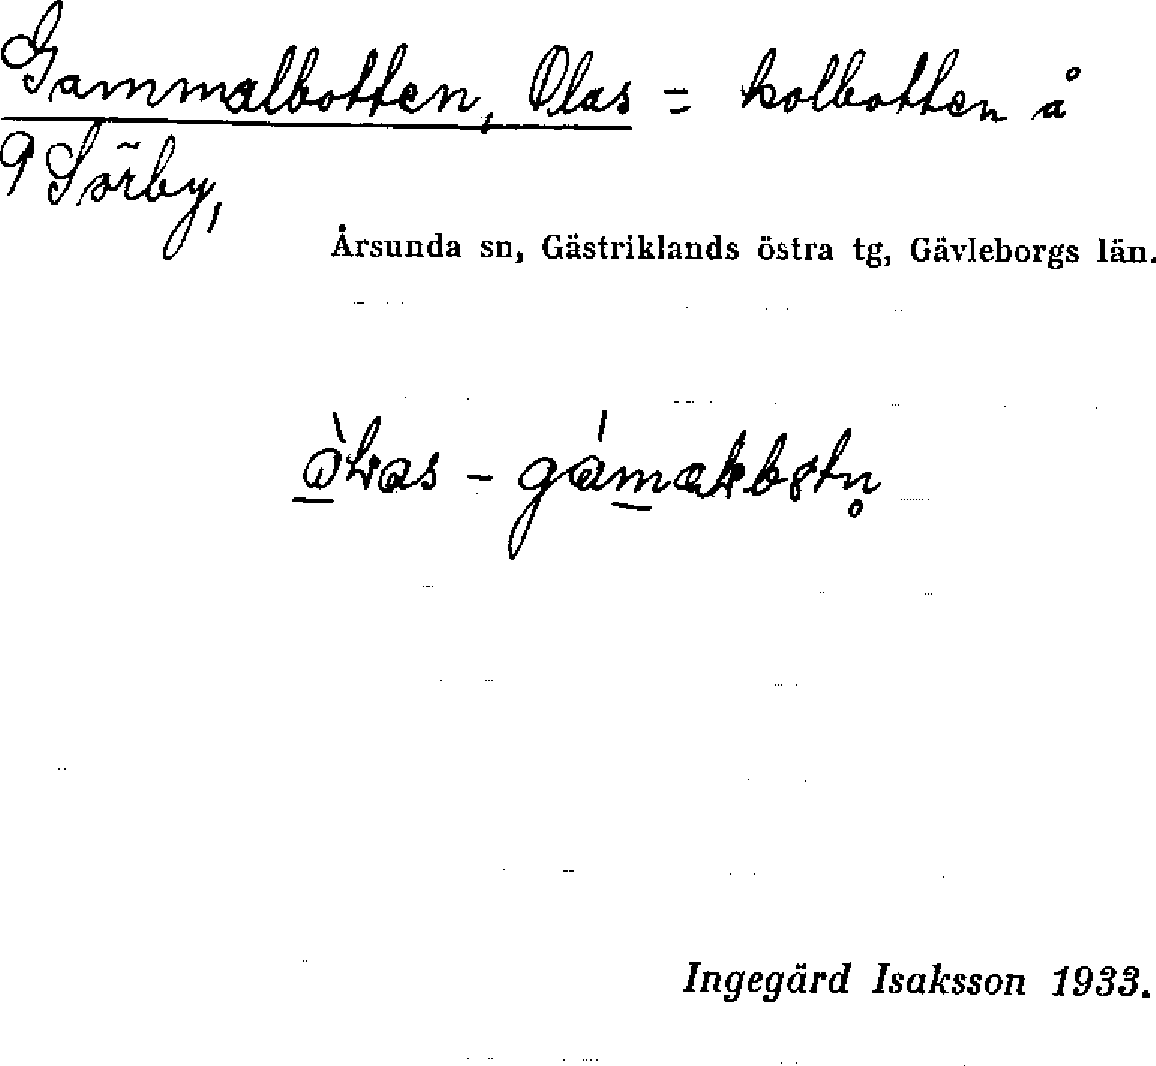 Gammalbotten, Olas = kolbotten å
9 Sörby,
Årsunda sn, Gästriklands östra tg, Gävleborgs län.
Ingegärd Isaksson 1933.